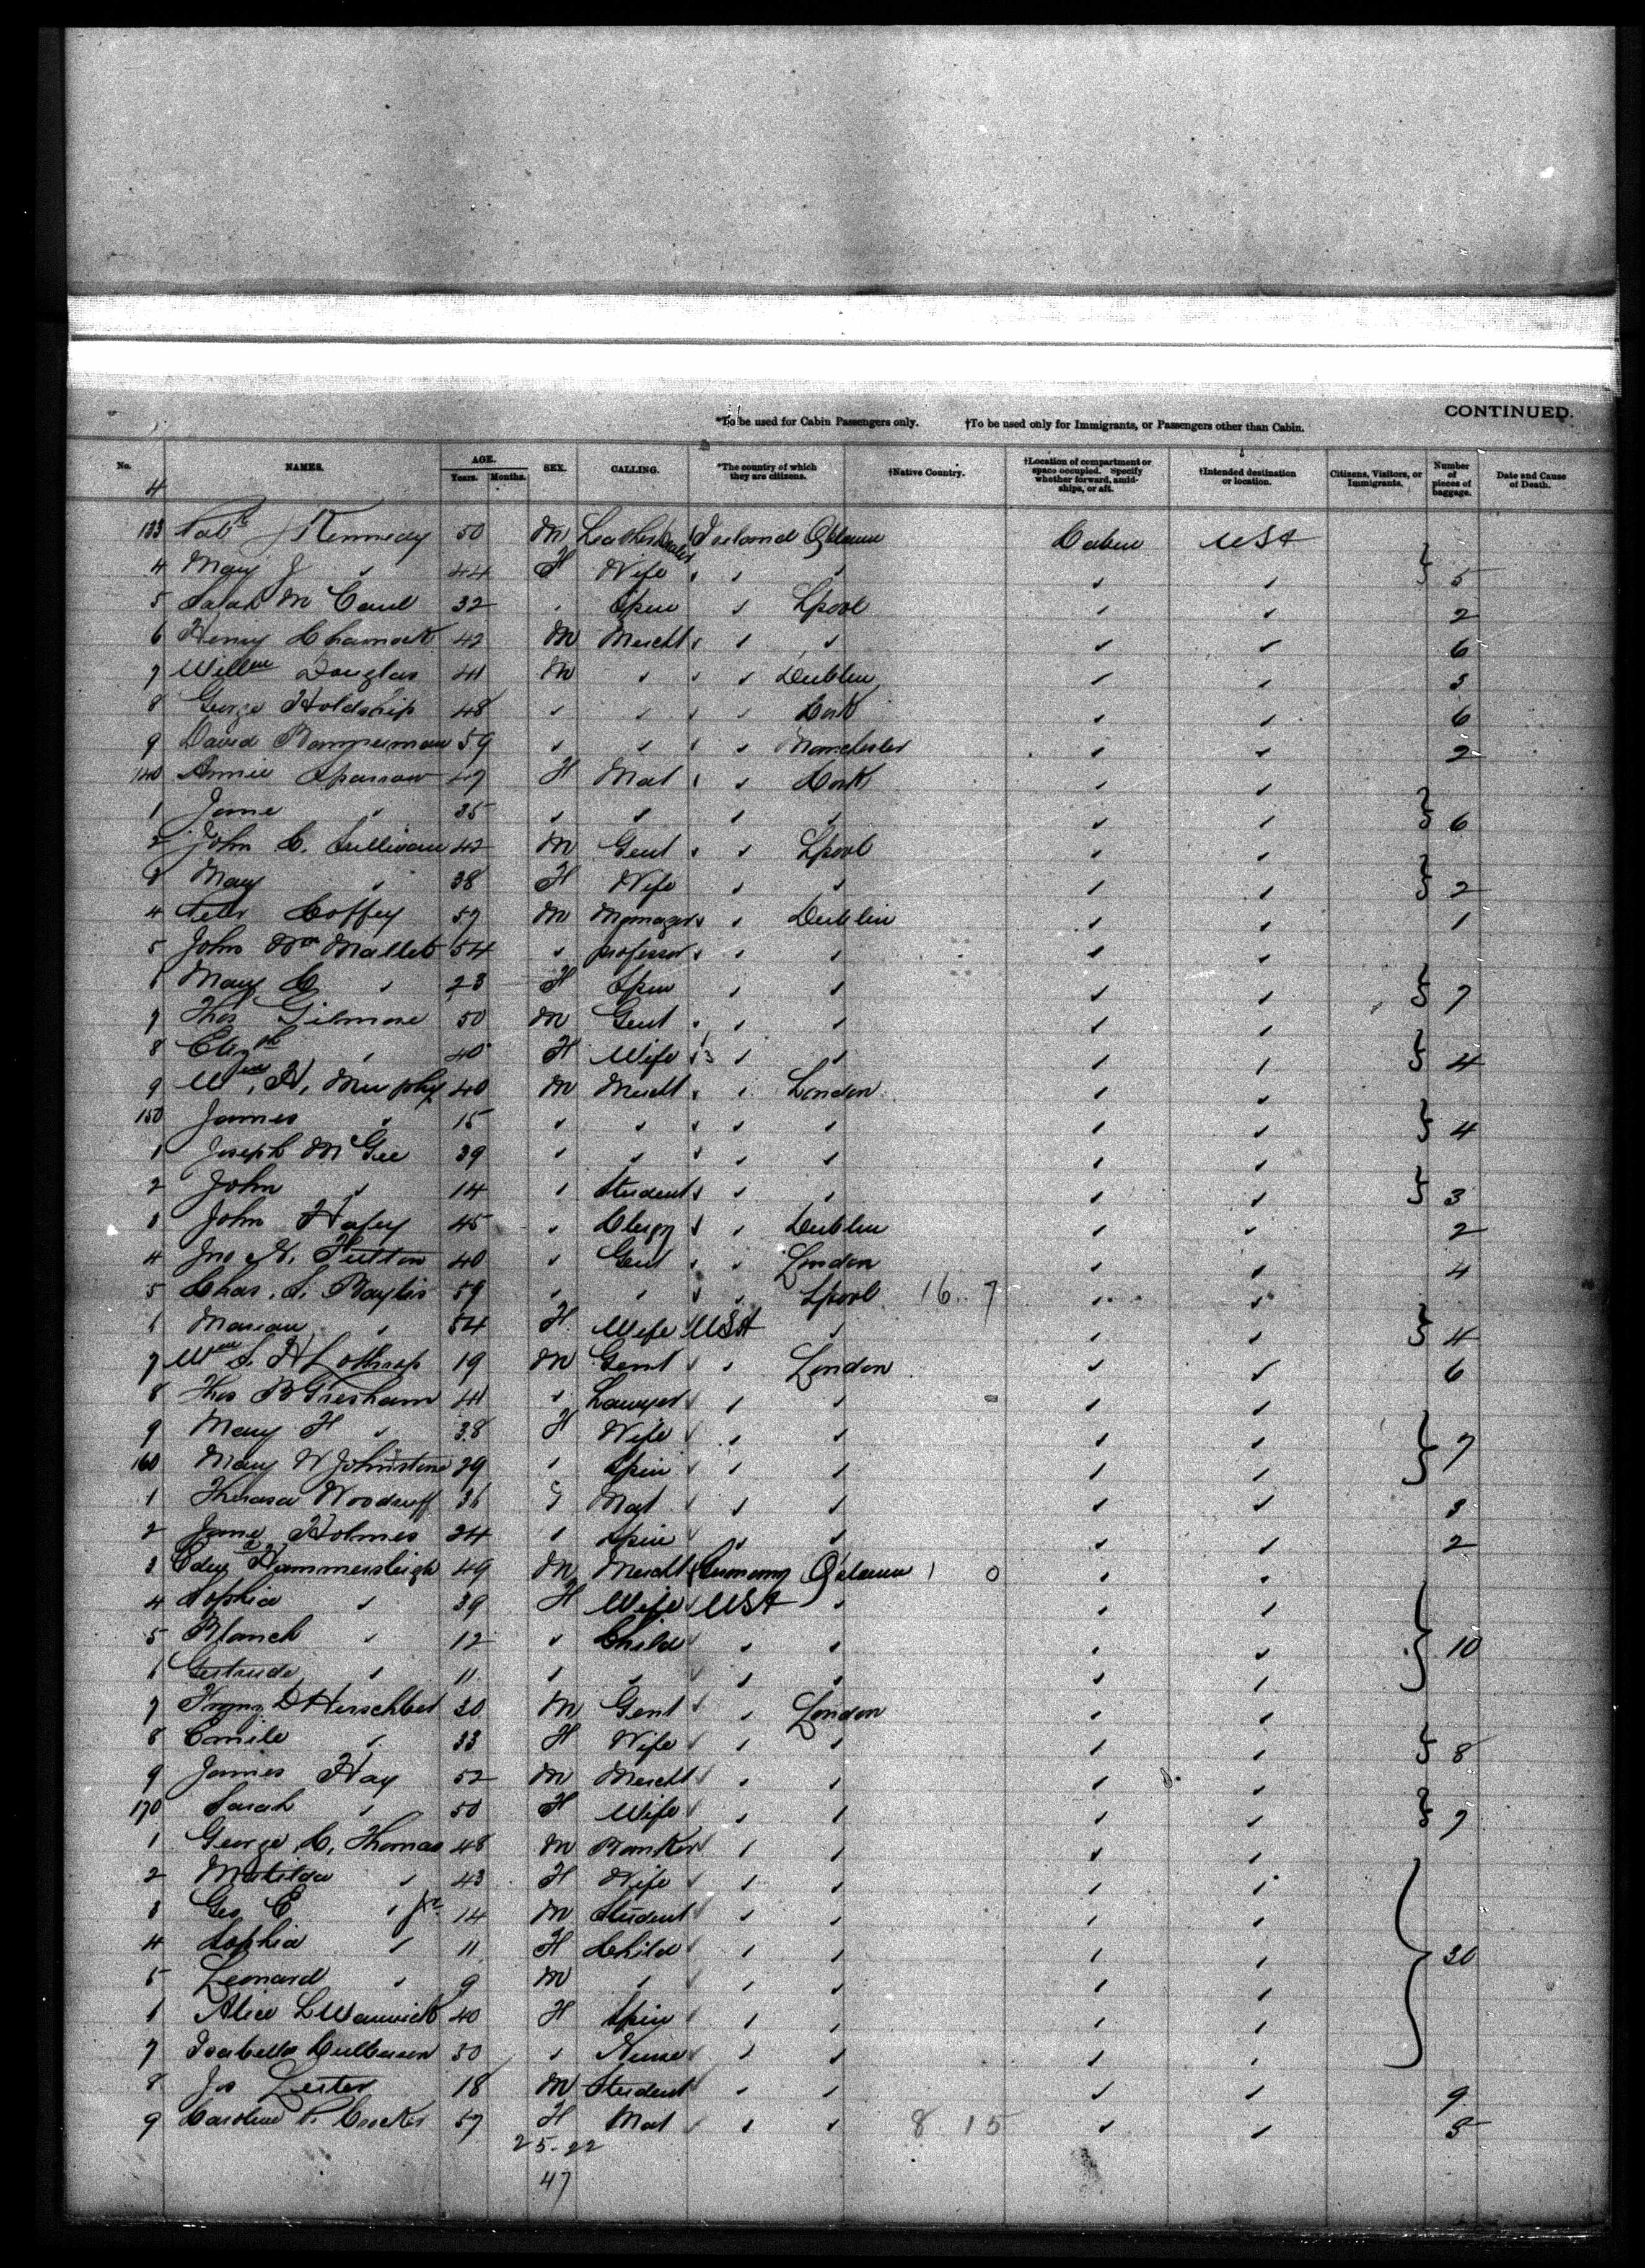 CONTINUED.
*To be used for Cabin Passengers only. †To be used only for Immigrants, or Passengers other than Cabin.
No. NAMES. AGE. Years. Months. SEX. CALLING. *The country of which they are citizens. †Native Country. †Location of compartment or space occupied. Specify whether forward, amidships, or aft. †Intended destination or location. Citizens, Visitors, or Immigrants. Number of pieces of baggage. Date and Cause of Death.
4
133 Patk J Kennedy 50 M Leather Dealer Ireland Cabin USA
4 Mary J " 44 F Wife " " " " 5
5 Sarah McCaul 32 " Spin " Lpool " " 2
6 Henry Charnock 42 M Mercht " " " " " 6
7 Willm Douglas 41 M " " " Dublin " " 3
8 George Holdship 48 " " " " Cork " " 6
9 David 59 " " " " Manchester " " 2
140 Annie Sparrow 47 F Mat " " Cork " "
1 Jane " 35 " " " " " " 6
2 John C. Sullivan 42 M Gent " " Lpool " "
3 Mary " 38 F Wife " " " " 2
4 Peter Coffey 57 M Manager " " Dublin " " 1
5 John Wm Mallet 54 " professor " " " " "
6 Mary C " 23 F Spin " " " " 7
7 Thos Gilmore 50 M Gent " " " " "
8 Elizth " 40 F Wife " " " " " 4
9 Wm. H. Murphy 40 M Mercht " " London " "
150 James " 15 " " " " " " " 4
1 Joseph McGee 39 " " " " " " "
2 John " 14 " Student " " " " " 3
3 John Hafey 45 " Clergy " " Dublin " " 2
4 Jno N. Fulton 40 " Gent " " London " " 4
5 Chas. S. Bayliss 59 " " " " Lpool 16 7 " "
6 Marian " 54 F Wife USA " " " 4
7 Wm S. H Lothrop 19 M Gent " " London " " 6
8 Thos B Gresham 41 " Lawyer " " " " "
9 Mary H " 38 F Wife " " " " " 7
160 Mary W Johnstone 29 " Spin " " " " "
1 Theresa Woodruff 36 " Mat " " " " " 3
2 Jane Holmes 24 " Spin " " " " " 2
3 Hammersleigh 49 M Mercht Germany 1 0 " "
4 Sophia " 39 F Wife USA " " "
5 Blanch " 12 " Child " " " " " 10
6 Gertrude " 11 " " " " " " "
7 Franz D Herschbel 30 M Gent " " London " "
8 Emile " 33 F Wife " " " " " 8
9 James Hay 52 M Mercht " " " " "
170 Sarah " 50 F Wife " " " " " 7
1 George C. Thomas 48 M Banker " " " " "
2 Matilda " 43 F Wife " " " " "
3 Geo C " Jr 14 M Student " " " " "
4 Sophia " 11 F Child " " " " " 30
5 Leonard " 9 M " " " " " "
6 Alice L Warwick 40 F Spin " " " " "
7 Isabella 30 " Nurse " " " " "
8 Jos Lester 18 M Student " " " " " 9
9 Caroline P. Crocker 57 F Mat " " " 8 15 " "
25-22
47